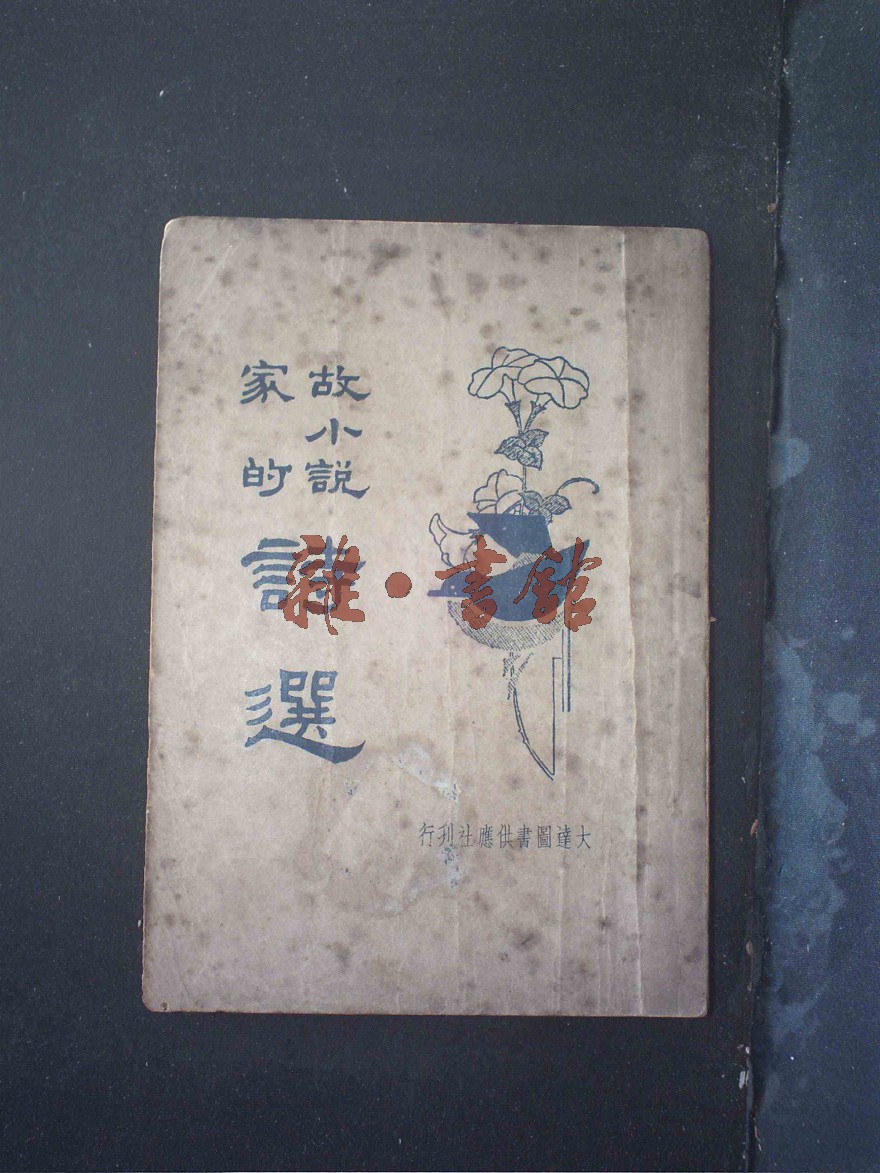 故小説
家的
詩選
大達圖書供應社刊行
雜·書館